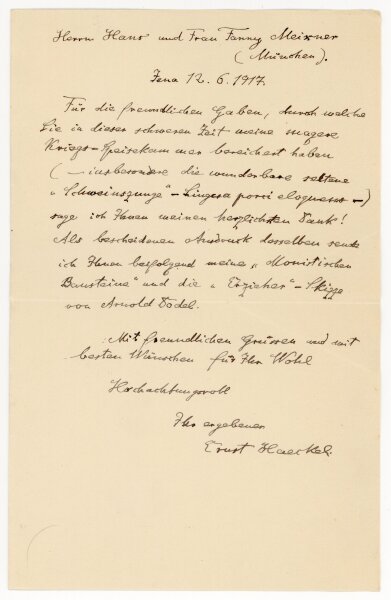 Herrn Hans und Frau Fanny Meixner
(München).
Jena 12. 6. 1917.
Für die freundlichen Gaben, durch welche
Sie in dieser schweren Zeit meine magere
Kriegs-Speisekammer bereichert haben
(– insbesondere die wunderbare seltene
„Schweinszunge" – Lingua porci eloquens –)
sage ich Ihnen meinen herzlichsten Dank!
Als bescheidenen Ausdruck desselben sende
ich Ihnen beifolgend meine „Monistischen
Bausteine" und die „Erzieher"-Skizze
von Arnold Dodel.
Mit freundlichen Grüssen und mit
besten Wünschen für Ihr Wohl
Hochachtungsvoll
Ihr ergebener
Ernst Haeckel.